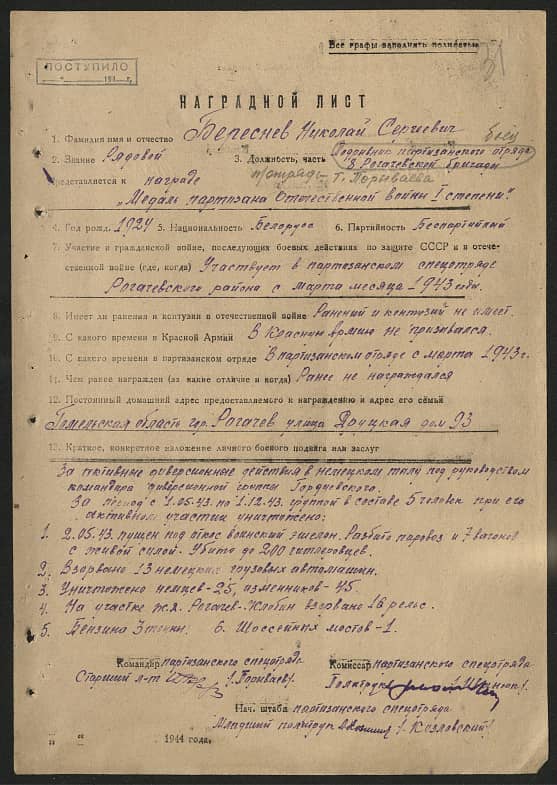 Все графы заполнять полностью
ПОСТУПИЛО
НАГРАДНОЙ ЛИСТ
1. Фамилия имя и отчество Береснев Николай Сергеевич
боец
2. Звание Рядовой 3. Должность, часть Подрывник партизанского отряда
8. Рогачевской бригады
Представляется к награде отряд Г. Порываева
„Медаль партизана Отечественной войны I степени".
4. Год рожд. 1924 5. Национальность Белорус 6. Партийность Беспартийный
7. Участие и гражданской войне, последующих боевых действиях по защите СССР и в отече-
ственной войне (где, когда) Участвует в партизанском спецотряде
Рогачевского района с марта месяца 1943 года.
8. Имеет ли ранения и контузии в отечественной войне Ранений и контузий не имеет.
9. С какого времени в Красной Армии В Красную армию не призывался.
10. С какого времени в партизанском отряде В партизанском отряде с марта 1943 г.
11. Чем ранее награжден (за какие отличие и когда) Ранее не награждался
12. Постоянный домашний адрес предоставляемого к награждению и адрес его семьи
Гомельская область гор. Рогачев улица Друцкая дом 93
13. Краткое, конкретное изложение личного боевого подвига или заслуг
За активные диверсионные действия в немецком тылу под руководством
командира диверсионной группы Гордиевского.
За период с 1.05.43. по 1.12.43. группой в составе 5 человек при его
активном участии уничтожено:
1. 2.05.43. пущен под откос воинский эшелон. Разбито паровоз и 7 вагонов
с живой силой. Убито до 200 гитлеровцев.
2. Взорвано 13 немецких грузовых автомашин.
3. Уничтожено немцев-25, изменников-45.
4. На участке ж.д. Рогачев-Жлобин взорвано 16 рельс.
5. Бензина 3 тонны. 6. Шоссейных мостов-1.
Командир партизанского спецотряда
Старший л-т /Порываев/
Комиссар партизанского спецотряда
Политрук
Нач. штаба партизанского спецотряда
Младший политрук /Козловский/
" " 1944 года.